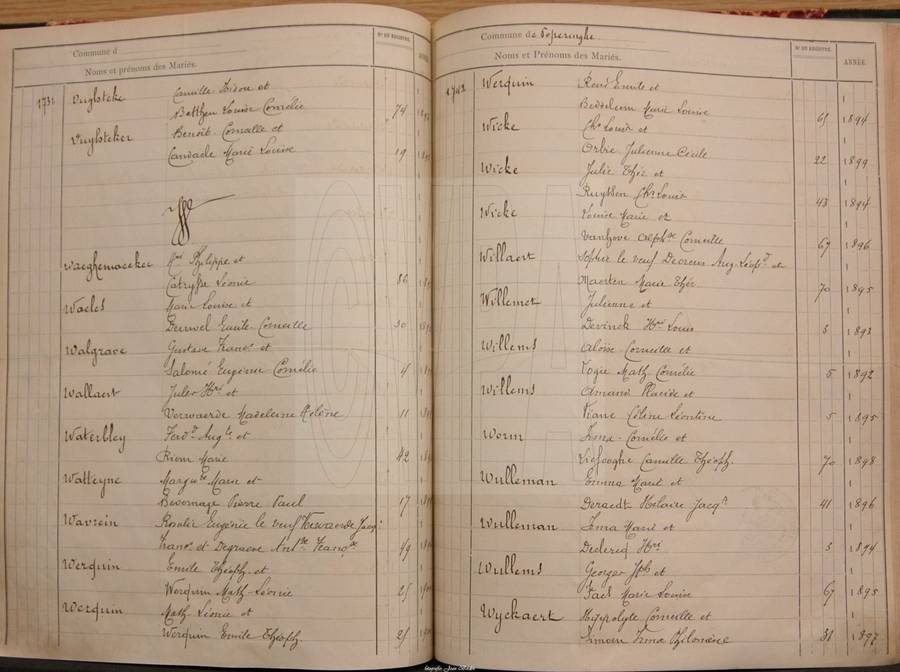 Commune d
N° DU REGISTRE.
ANNÉE
Noms et prénoms des Mariés.
Vuylsteke Camille Isidore et
Batthen Louise Cornélie 74
Vuylsteker Benoit Corneille et
Candaele Marie Louise 19
W
Waeghemaecker Hri Philippe et
Catrysse Léonie 36
Waeles Marie Louise et
Deuwel Emile Corneille 30
Walgrave Gustave Franc. et
Salomé Eugénie Cornélie 4
Wallaert Jules Hri et
Verwaerde Madeleine Hélène 11
Waterbley Ferd.d Aug.te et
Riem Marie 42
Watteyne Margu.te Marie et
Bevernage Pierre Paul 17
Wavrein Rosalie Eugénie le veuf Verwaerde Jacq.
Franc. et Degraeve Ant.ne Franç.se 49
Werquin Emile Théoph. et
Werquin Math. Léonie 25
Werquin Math. Léonie et
Werquin Emile Théoph. 25
Commune de Poperinghe
N° DU REGISTRE.
ANNÉE
Noms et Prénoms des Mariés.
1742 Werquin René Emile et
Marie Louise 61 1894
Wicke Ch.s Louis et
Orbie Julienne Cécile 22 1899
Wicke Julie Thér. et
Ruyssen Ch.s Louis 43 1894
Wicke Louise Marie et
Vanhove Alph.se Corneille 67 1896
Willaert Sophie le veuf Devreux Aug. Léop.d et
Maerten Marie Thér. 70 1895
Willemet Julienne et
Devinck Hri Louis 3 1893
Willems Aloïse Corneille et
Logie Math. Cornélie 5 1892
Willems Amand Placide et
Viane Céline Léontine 5 1895
Worm Irma Cornélie et
Liefooghe Camille Théoph. 70 1898
Wulleman Emma Marie et
Deraedt Hilaire Jacq. 41 1896
Wulleman Irma Marie et
Declercq Hri 3 1894
Wullems Georges Jph et
Jaes Marie Louise 67 1895
Wyckaert Hippolyte Corneille et
Simoen Irma Philomène 31 1897